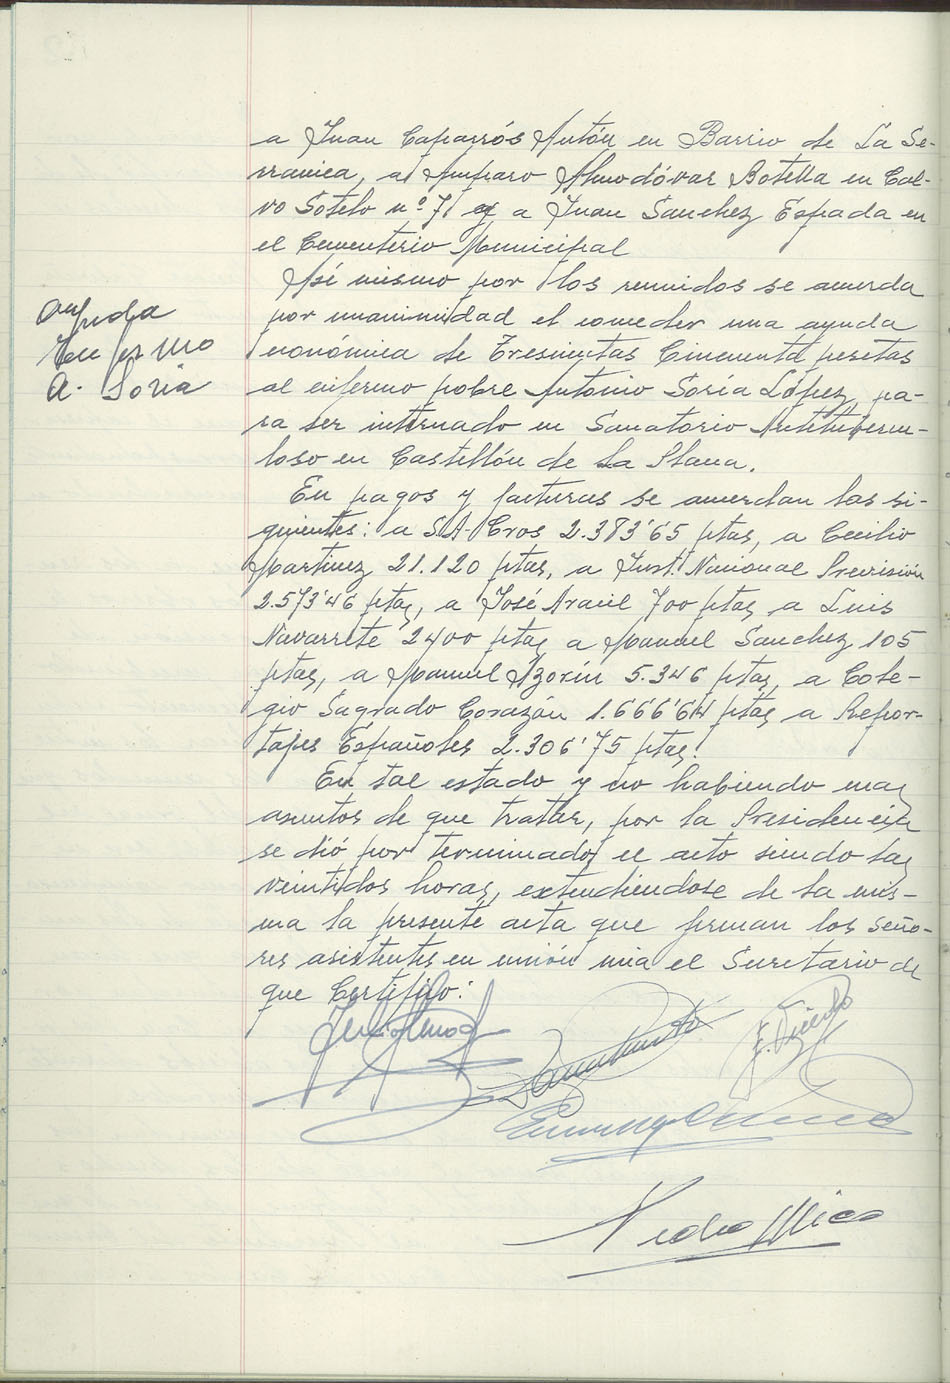 a Juan Caparrós Antón en Barrio de La Se-
rranica, a Amparo Almodóvar Botella en Cal-
vo Sotelo nº 7 y a Juan Sanchez Espada en
el Cementerio Municipal
Asi mismo por los reunidos se acuerda
por unanimidad el conceder una ayuda
económica de Trescientas Cincuenta pesetas
al enfermo pobre Antonio Soria López, pa-
ra ser internado en Sanatorio Antitubercu-
loso en Castellón de La Plana.
Ayuda
Enfermo
A. Soria
En pagos y facturas se acuerdan las si-
guientes: a S.A. Cros 2.383'65 ptas, a Cecilio
Martinez 21.120 ptas, a Inst. Nacional Previsión
2.573'46 ptas, a José Aracil 700 ptas a Luis
Navarrete 2400 ptas a Manuel Sanchez 105
ptas, a Manuel Azorín 5.346 ptas, a Cole-
gio Sagrado Corazón 1.666'64 ptas a Repor-
tajes Españoles 2.306'75 ptas.
En tal estado y no habiendo mas
asuntos de que tratar, por la Presidencia
se dió por terminado el acto siendo las
veintidos horas, extendiendose de la mis-
ma la presente acta que firman los seño-
res asistentes en unión mia el Secretario de
que Certifico:
Pedro Mico